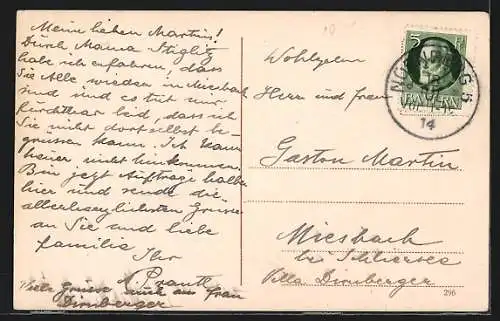 Meine lieben Martins!
Durch Mama Stiglitz
habe ich erfahren, dass
Sie Alle wieder in Miesbach
sind und es tut mir
furchtbar leid, dass ich
Sie nicht dort selbst be-
grüssen kann. Ich kann
heuer nicht hinkommen.
Bin jetzt Auftrage halber
hier und sende die
allerherzlichsten Grüsse
an Sie und liebe
Familie Ihr
A. Prantl
Viele Grüsse auch an Frau
Dirnberger
5
BAYERN
NÜRNBERG 5
14
Wohlgeboren
Herrn und Frau
Gaston Martin
Miesbach
bei Schliersee
Villa Dirnberger
296